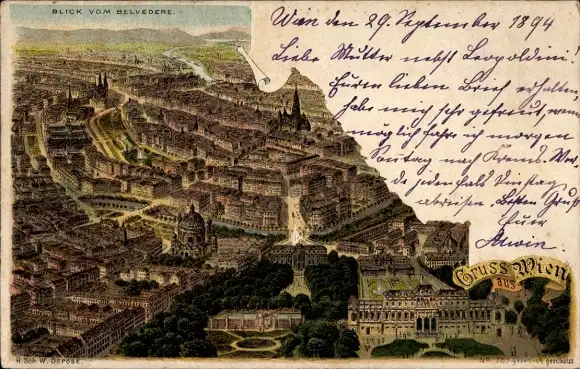 BLICK VOM BELVEDERE.
Wien den 29. September 1894
Liebe Mutter nebst Leopoldine!
Euren lieben Brief erhalten,
habe mich sehr gefreut, wenn
möglich fahre ich morgen
Sontag nach Krems. Wer-
de jedenfalls Dinstag
abreisen. Besten Gruß
Euer
Alwin.
Gruss aus Wien
H. Sch. W. DEPOSE.
No 202 gesetzlich geschützt